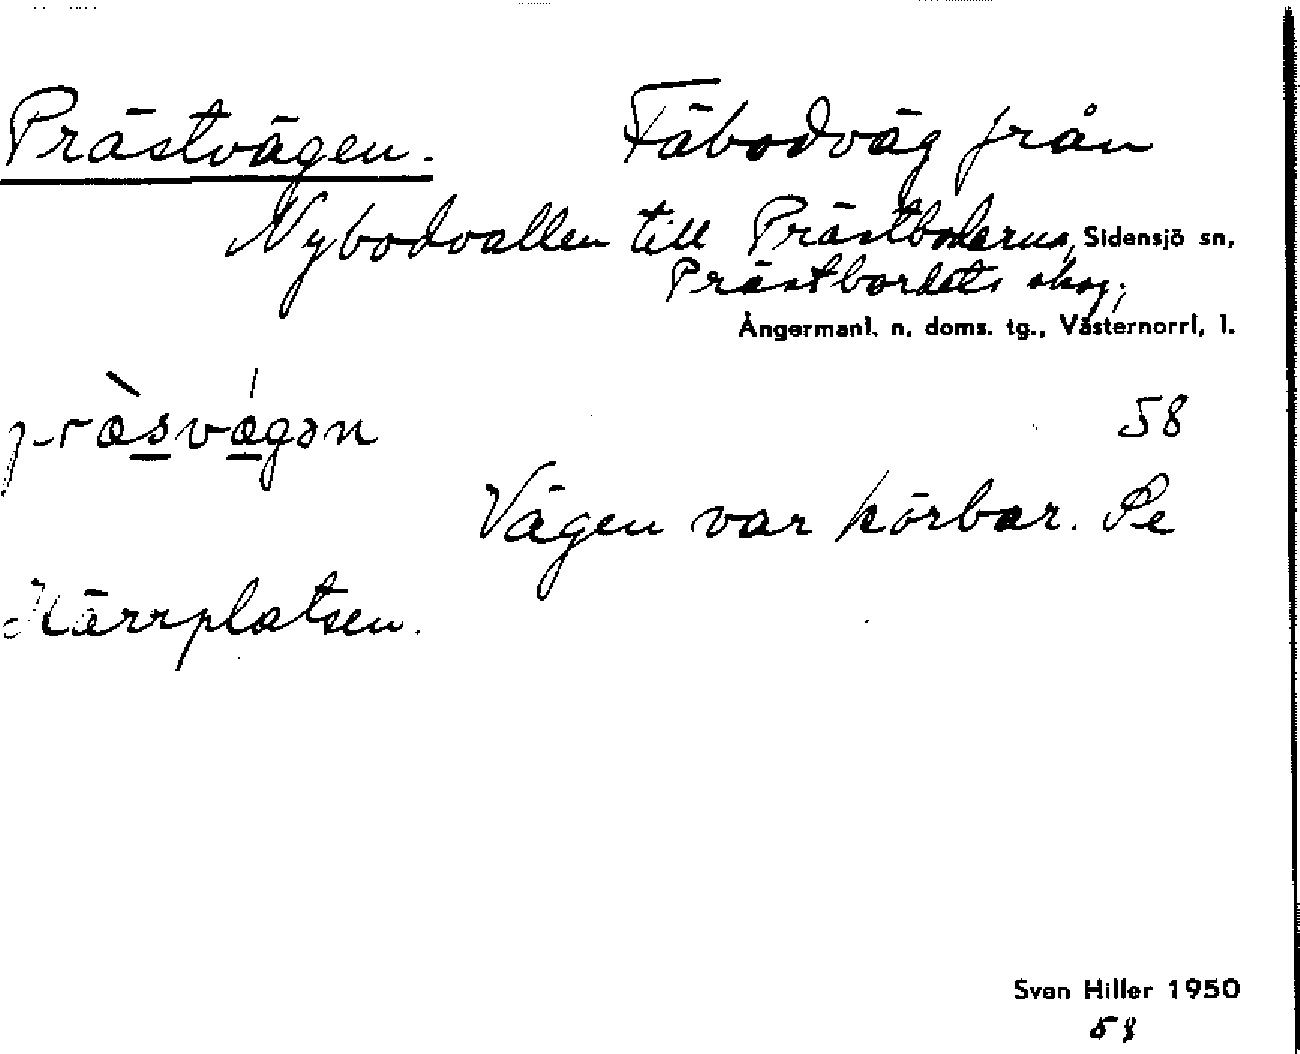 Prästvägen. Fäbodväg från
Nybodvallen till Prästbodarna, Sidensjö sn,
Prästbordets skog;
Ångermanl. n. doms. tg., Västernorrl. l.
præ̀svǽgən 58
Vägen var körbar. Se
Kärrplatsen.
Sven Hiller 1950
58